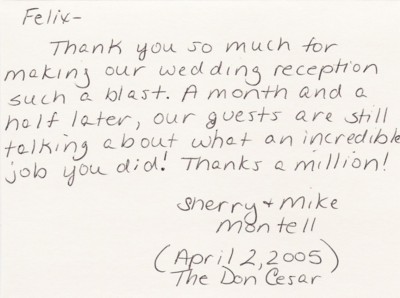 Felix-
Thank you so much for
making our wedding reception
such a blast. A month and a
half later, our guests are still
talking about what an incredible
job you did! Thanks a million!
Sherry + Mike
Montell
(April 2, 2005)
The Don Cesar